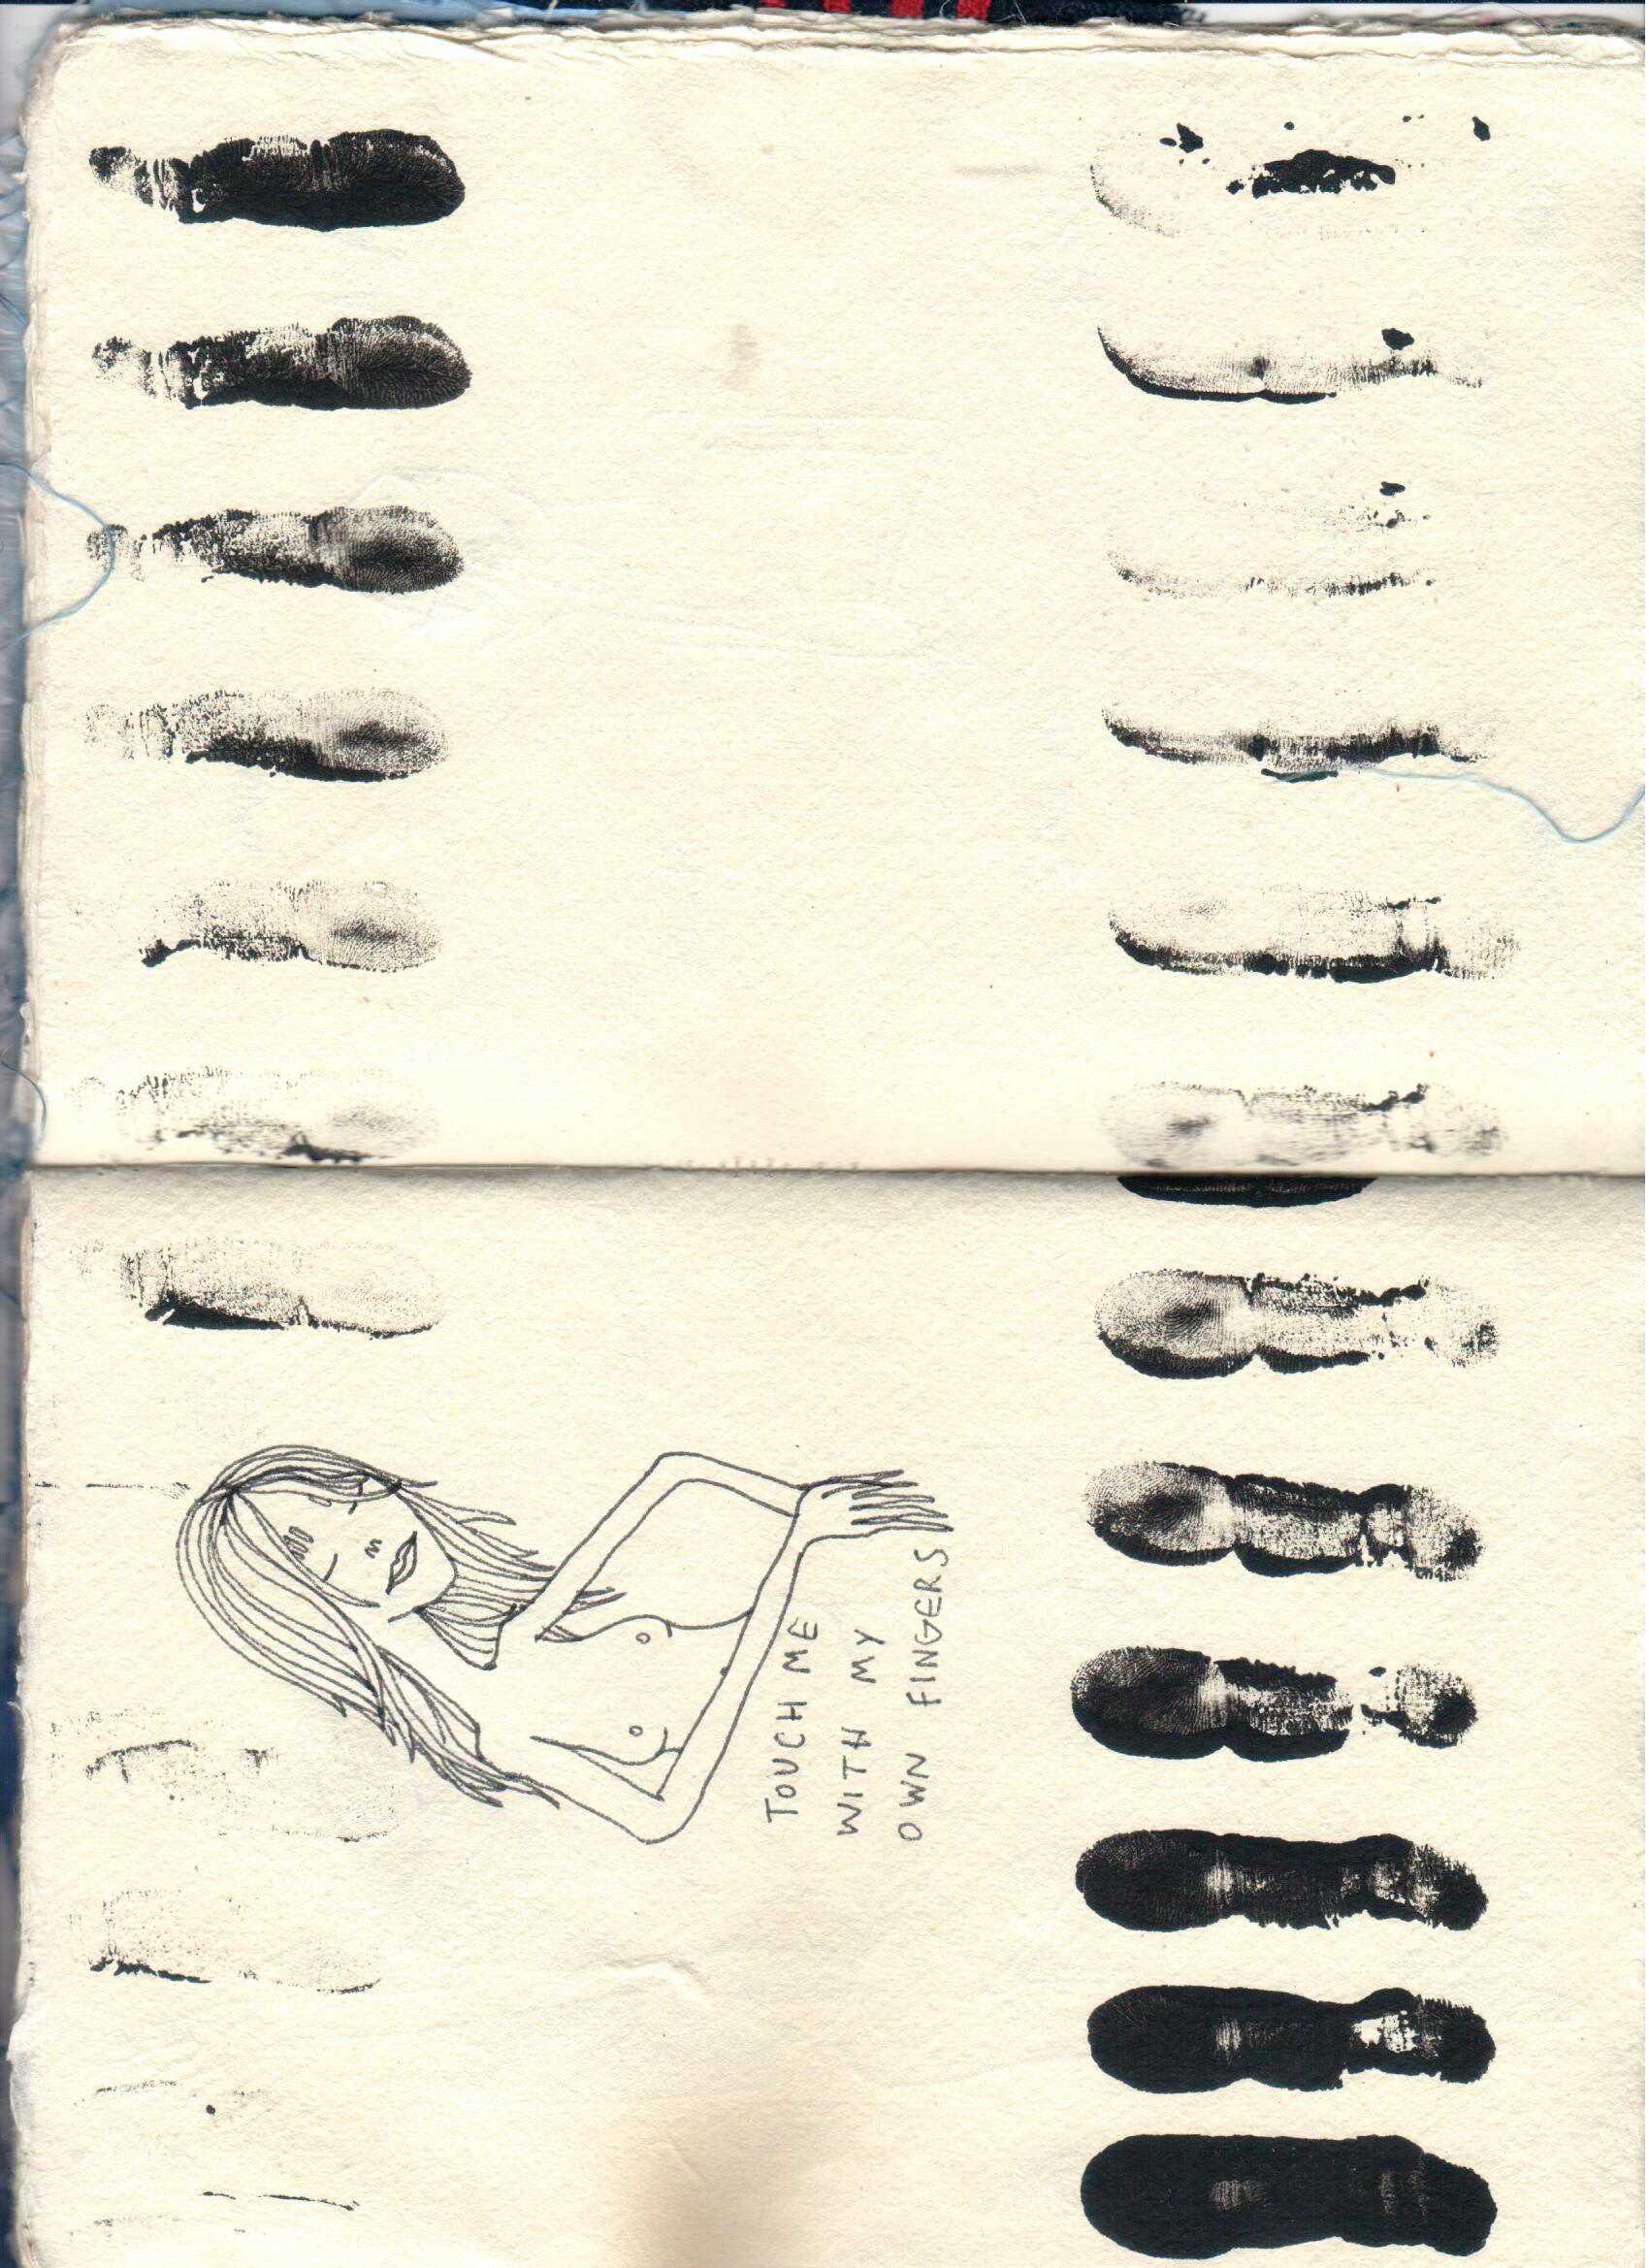 TOUCH ME
WITH MY
OWN FINGERS